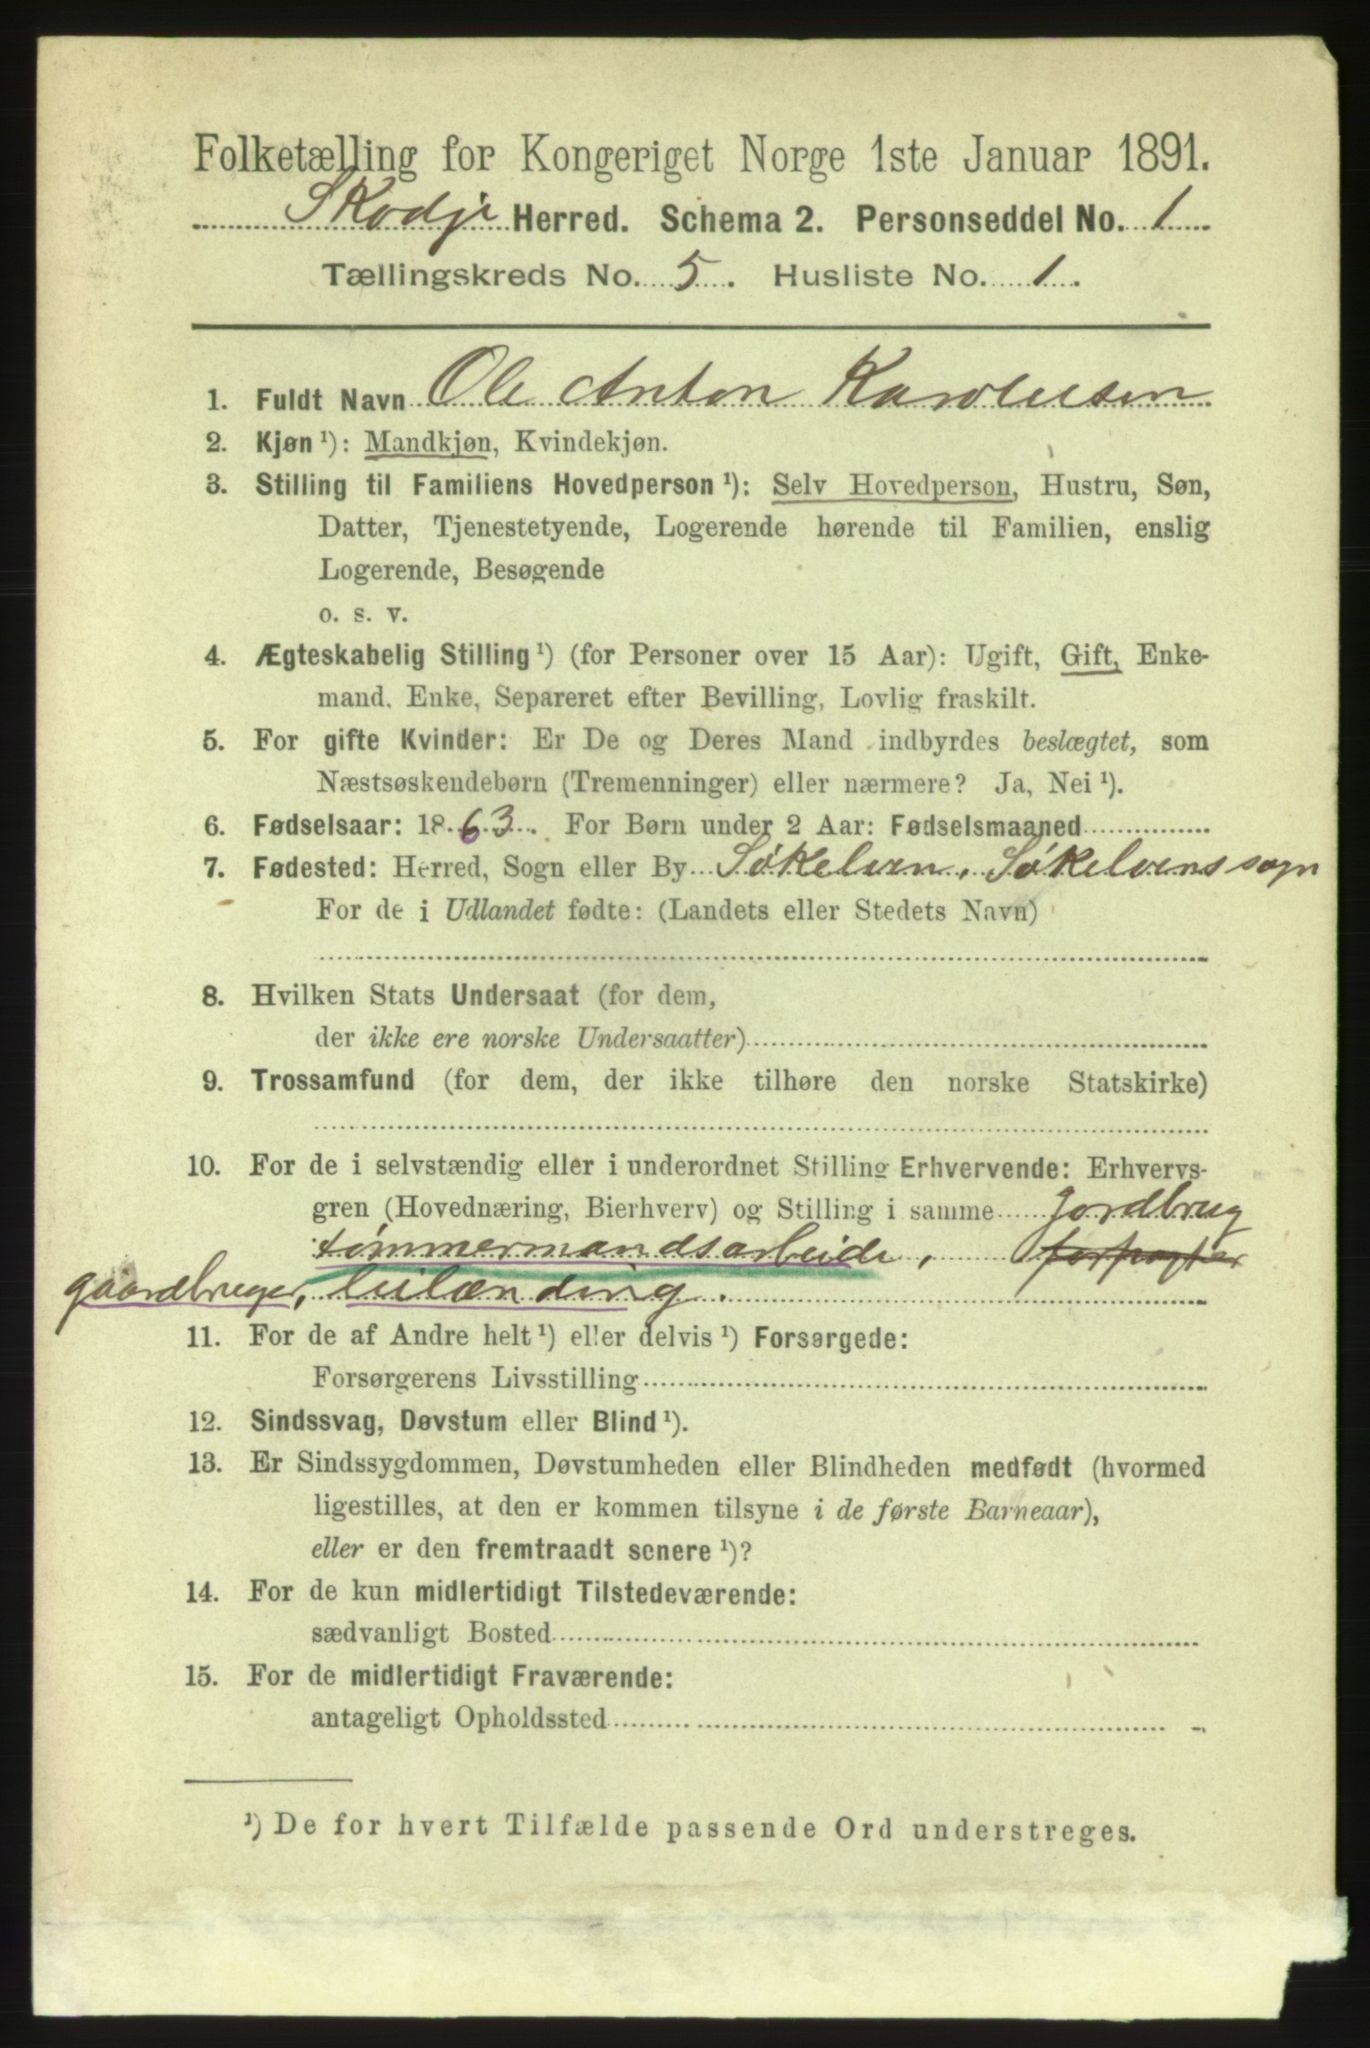 Folketælling for Kongeriget Norge 1ste Januar 1891.
Skodje Herred. Schema 2. Personseddel No. 1
Tællingskreds No. 5. Husliste No. 1.
1. Fuldt Navn Ole Anton Karolusen
2. Kjøn ¹): Mandkjøn, Kvindekjøn.
3. Stilling til Familiens Hovedperson ¹): Selv Hovedperson, Hustru, Søn,
Datter, Tjenestetyende, Logerende hørende til Familien, enslig
Logerende, Besøgende
o. s. v.
4. Ægteskabelig Stilling ¹) (for Personer over 15 Aar): Ugift, Gift, Enke-
mand, Enke, Separeret efter Bevilling, Lovlig fraskilt.
5. For gifte Kvinder: Er De og Deres Mand indbyrdes beslægtet, som
Næstsøskendebørn (Tremenninger) eller nærmere? Ja, Nei ¹).
6. Fødselsaar: 1863. For Børn under 2 Aar: Fødselsmaaned
7. Fødested: Herred, Sogn eller By Søkelven, Søkelvens sogn
For de i Udlandet fødte: (Landets eller Stedets Navn)
8. Hvilken Stats Undersaat (for dem,
der ikke ere norske Undersaatter)
9. Trossamfund (for dem, der ikke tilhøre den norske Statskirke)
10. For de i selvstændig eller i underordnet Stilling Erhvervende: Erhvervs-
gren (Hovednæring, Bierhverv) og Stilling i samme Jordbrug
tømmermandsarbeide, forpagter
gaardbruger, leilænding.
11. For de af Andre helt ¹) eller delvis ¹) Forsørgede:
Forsørgerens Livsstilling
12. Sindssvag, Døvstum eller Blind ¹).
13. Er Sindssygdommen, Døvstumheden eller Blindheden medfødt (hvormed
ligestilles, at den er kommen tilsyne i de første Barneaar),
eller er den fremtraadt senere ¹)?
14. For de kun midlertidigt Tilstedeværende:
sædvanligt Bosted
15. For de midlertidigt Fraværende:
antageligt Opholdssted
¹) De for hvert Tilfælde passende Ord understreges.